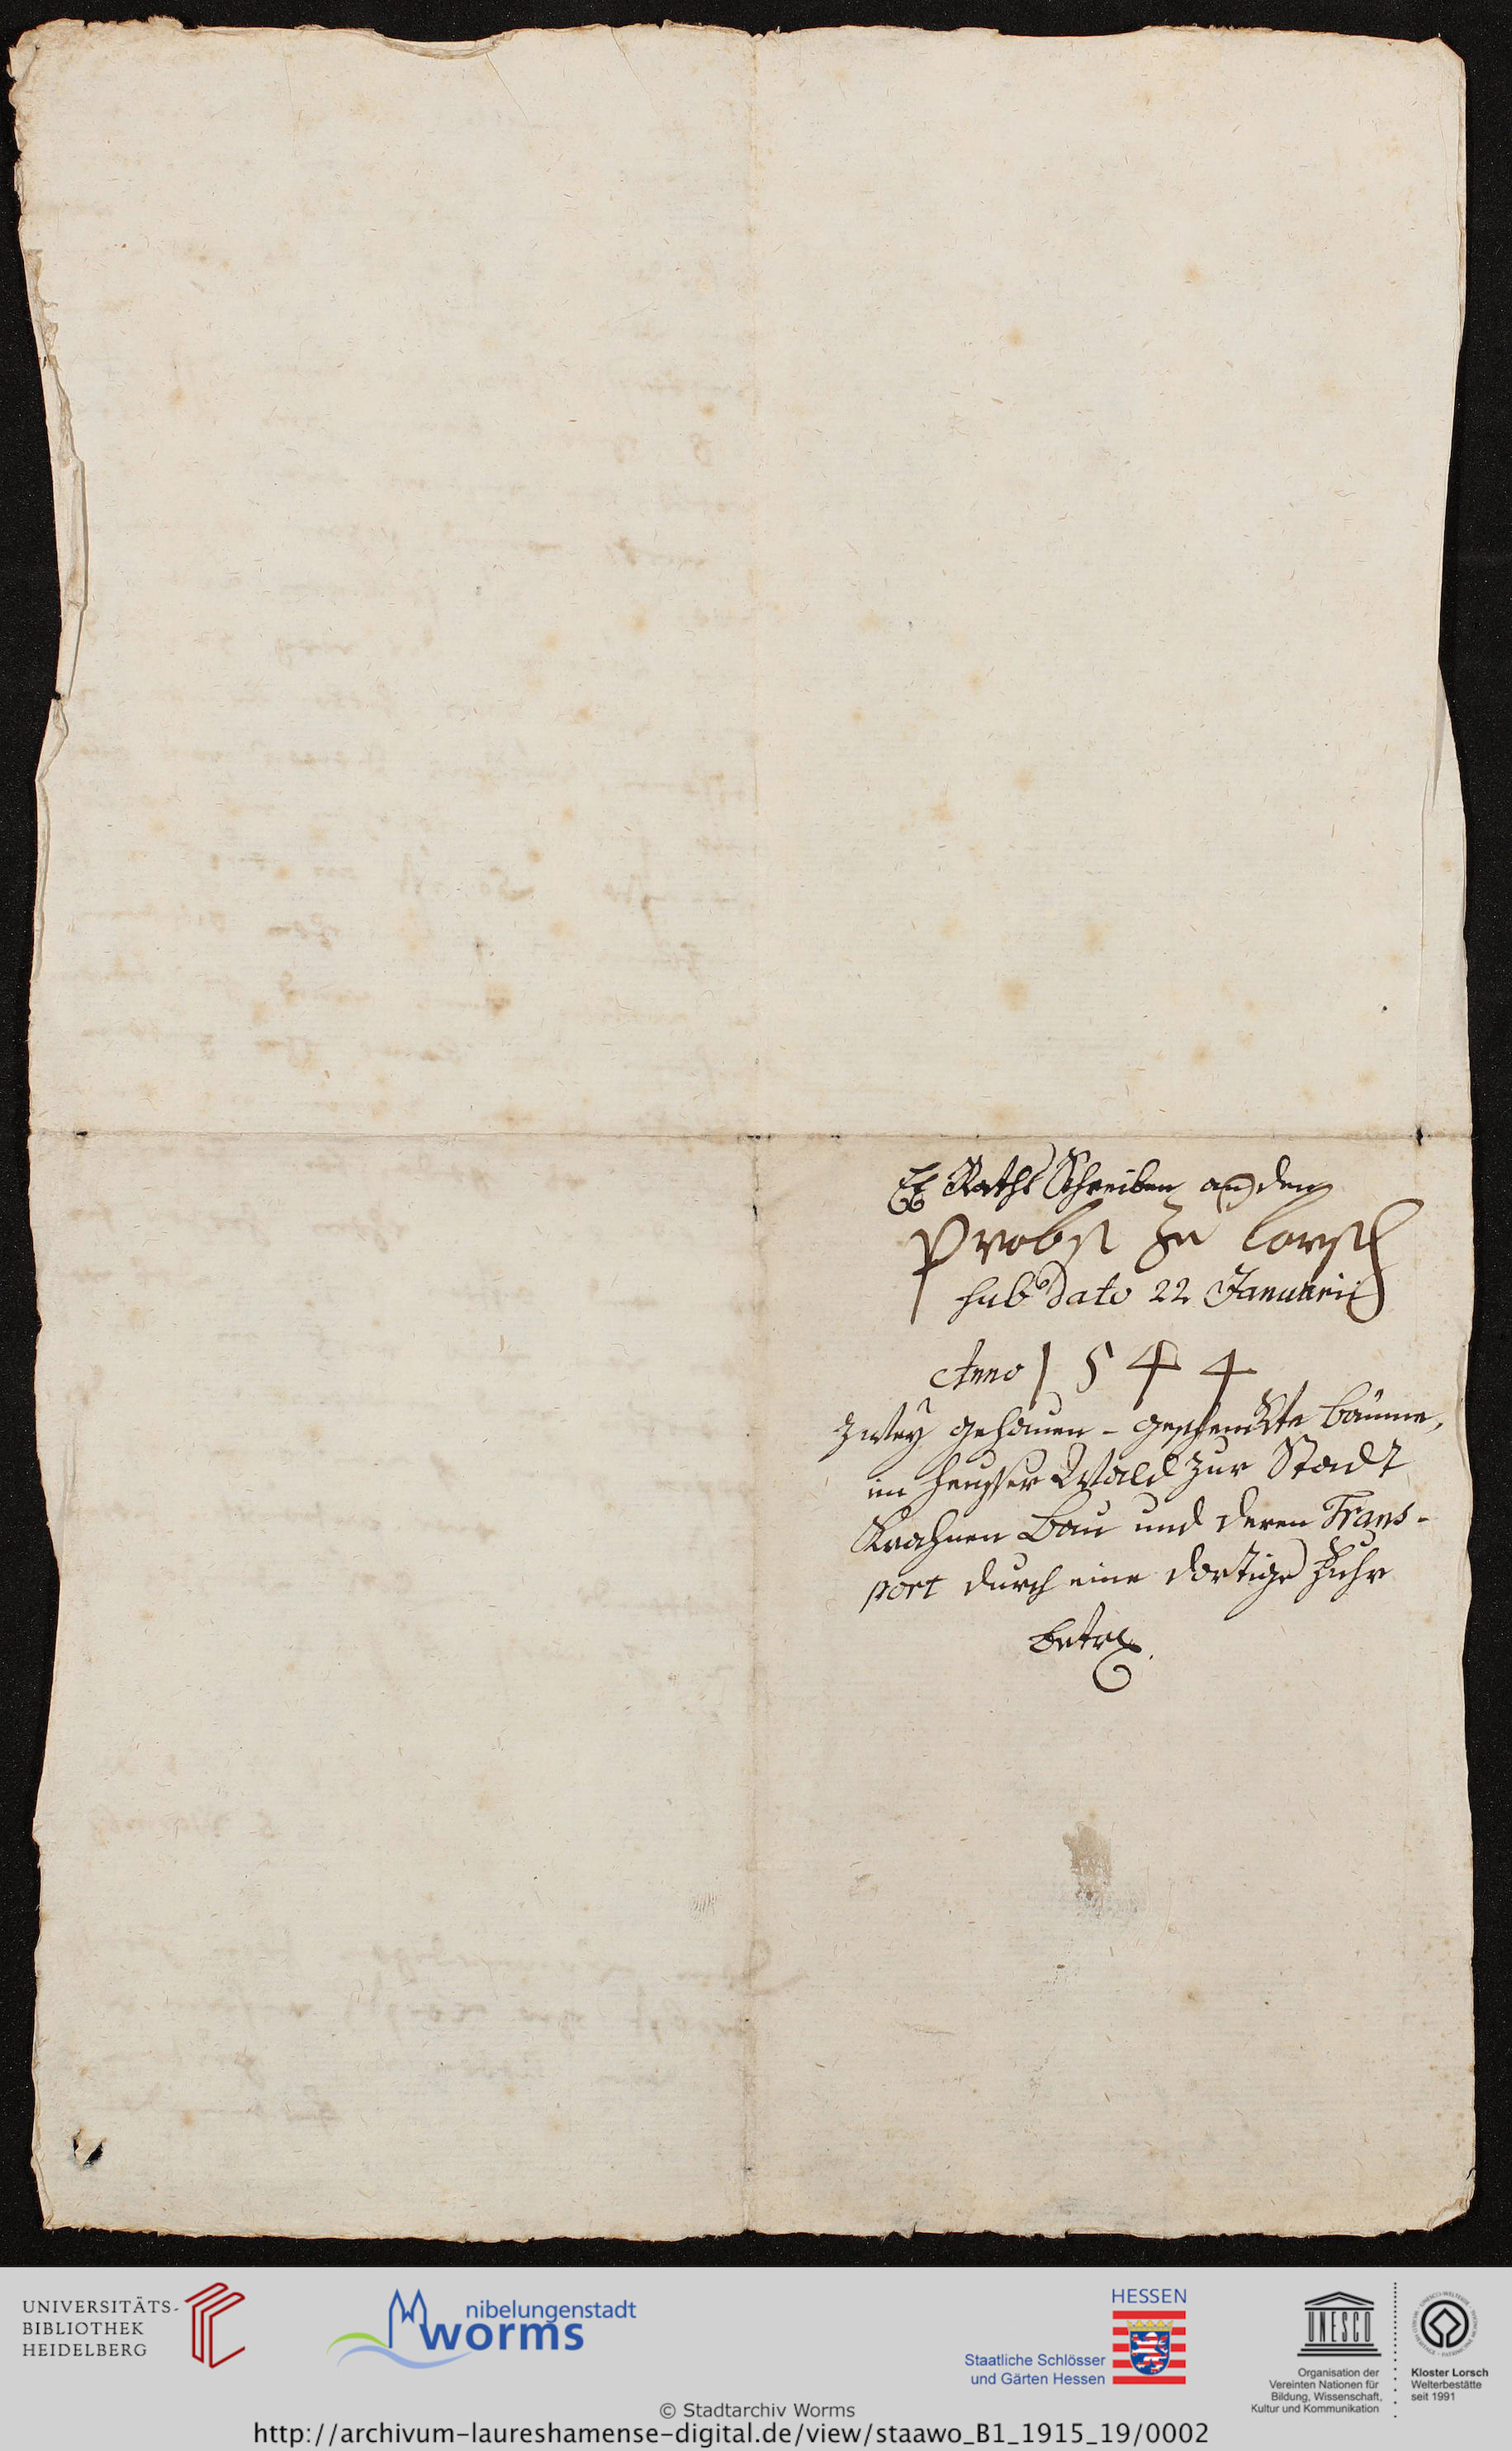 E. E. Raths Schreiben an den
Probst zu Lorsch
sub dato 22 Januarii
Anno 1544
zwey gehauen - geschenckte bäume,
im Heußer Wald zur Stadt
Krahnen Bau und deren Trans-
port durch eine dortige Fuhr
betr.
UNIVERSITÄTS-
BIBLIOTHEK
HEIDELBERG
nibelungenstadt
worms
HESSEN
Staatliche Schlösser
und Gärten Hessen
UNESCO
Organisation der
Vereinten Nationen für
Bildung, Wissenschaft,
Kultur und Kommunikation
Kloster Lorsch
Welterbestätte
seit 1991
© Stadtarchiv Worms
http://archivum-laureshamense-digital.de/view/staawo_B1_1915_19/0002